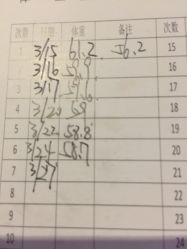 次数 日期 体重 备注 次数
3/15 61.2 56.2 15
3/16 59.9 16
3 3/17 17
4 3/20 59 18
5 3/22 58.8 19
6 3/24 58.7 20
7 3/27 21
8 22
9 23
10 24